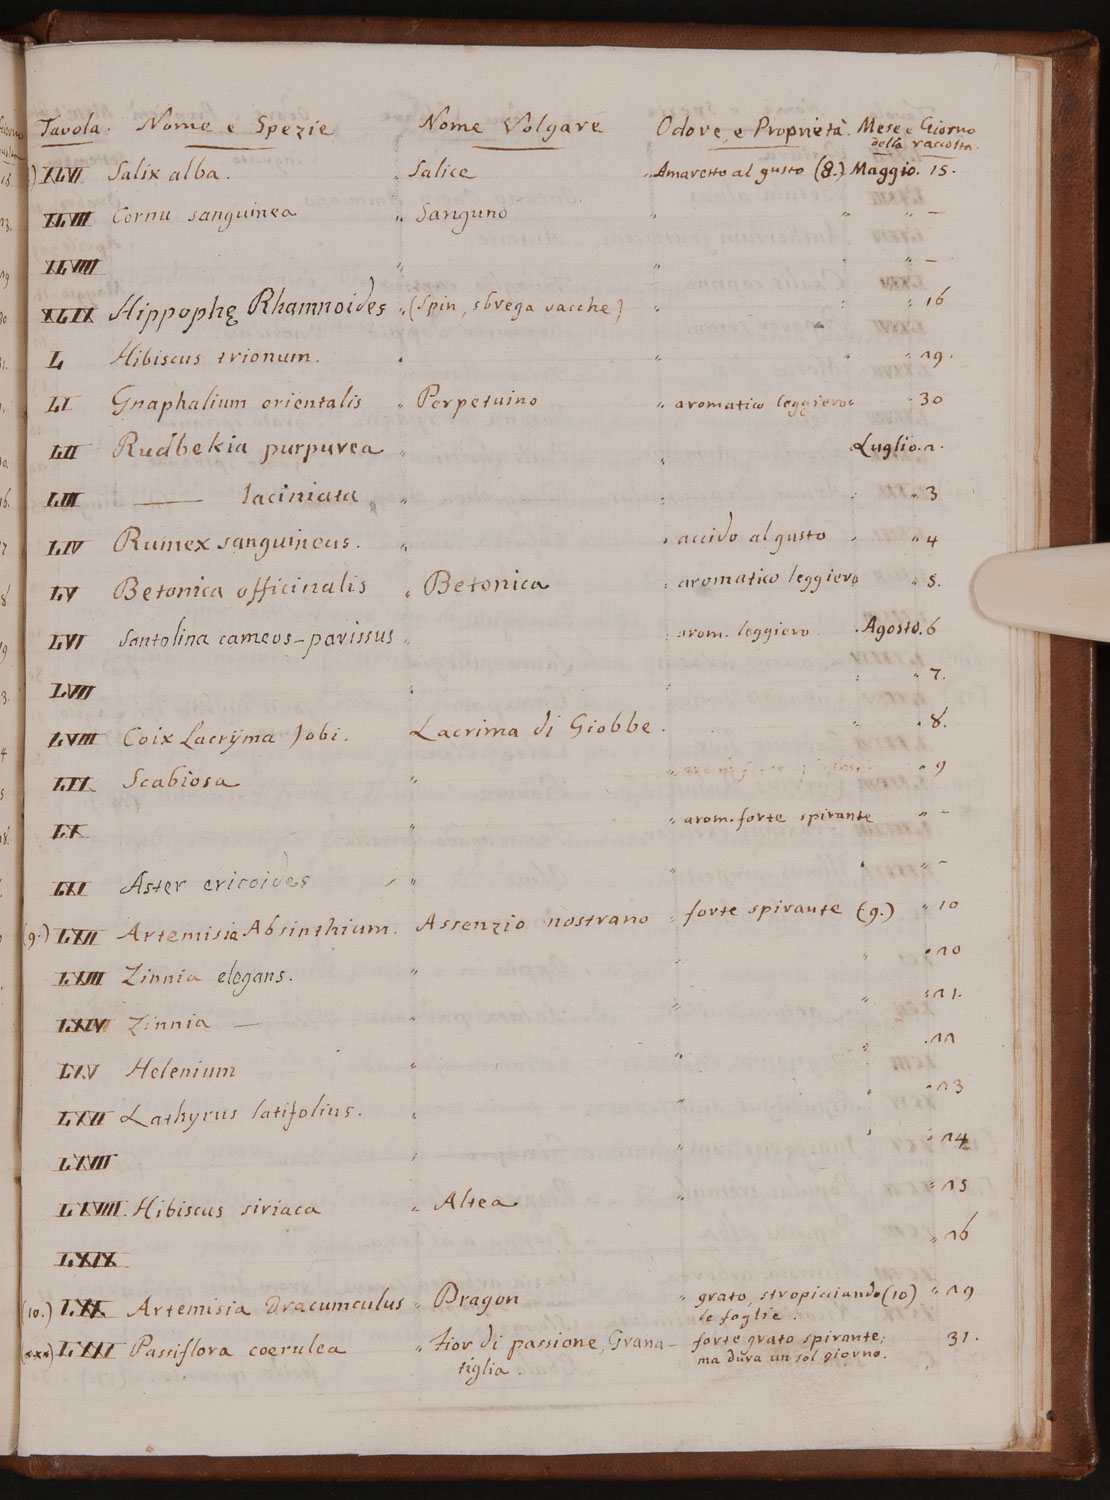 Tavola. Nome e Spezie Nome Volgare Odore, e Proprietà. Mese e Giorno
della raccolta.
XLVI Salix alba. „ Salice „ Amaretto al gusto (8.) Maggio. 15.
XLVII Cornu sanguinea „ Sanguno „ „ „ —
XLVIII „ „ „ „ —
XLIX Hippophę Rhamnoides „ (Spin, sbrega vacche) „ „ „ 16
L Hibiscus trionum. „ „ „ „ 19.
LI Gnaphalium orientalis „ Perpetuino „ aromatico leggiero „ „ 30
LII Rudbekia purpurea „ „ Luglio. 1.
LIII —— laciniata „ „ „ „ 3
LIV Rumex sanguineus. „ „ accido al gusto „ „ 4
LV Betonica officinalis „ Betonica „ aromatico leggiero „ 5.
LVI Santolina cameos-parissus „ „ arom. leggiero . Agosto. 6
LVII „ „ „ „ 7.
LVIII Coix Lacrÿma Jobi. Lacrima di Giobbe. „ „ 8.
LIX Scabiosa „ „ „ 9
LX „ „ arom. forte spirante „ —
LXI Aster ericoides „ „ „ „ —
(9.) LXII Artemisia Absinthium. Assenzio nostrano „ forte spirante (9.) „ 10
LXIII Zinnia elegans. „ „ „ „ 10
LXIV Zinnia — „ „ „ „ 11.
LXV Helenium „ „ „ „ 11
LXVI Lathyrus latifolius. „ „ „ „ 13
LXVII „ „ „ „ 14
LXVIII. Hibiscus siriaca „ Altea „ „ 15
LXIX „ 16
(10.) LXX Artemisia Dracumculus „ Dragon „ grato, stropicciando (10) „ 19
le foglie.
(xxx) LXXI Passiflora coerulea „ Fior di passione, Grana- forte grato spirante; 31.
tiglia. ma dura un sol giorno.